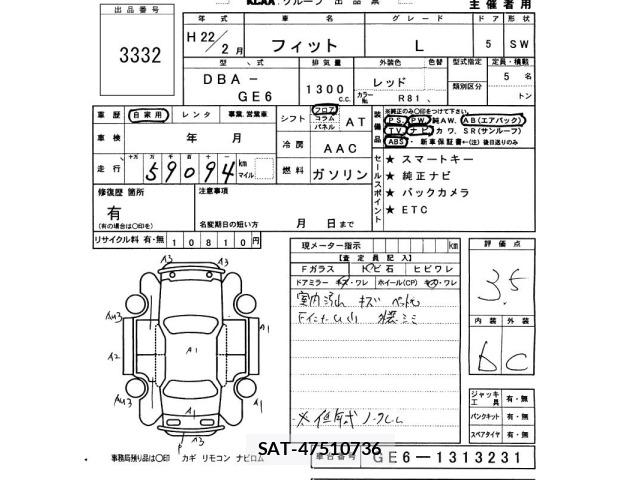 KCAA グループ 出品票
主催者用
出品番号
3332
年式
車名
グレード
ドア
形状
H22/2月
フィット
L
5
SW
型式
排気量
外装色
色替
型式指定
定員・積載
DBA-
GE6
1300 c.c.
レッド
カラーNo. R81
類別区分
5 名
トン
車歴
自家用
レンタ
事業、営業車
シフト
フロア
コラム
パネル
AT
装備品
※純正のみ○印をつけて下さい。
PS PW 純AW. AB(エアバック)
TV ナビ カワ. SR(サンルーフ)
ABS・新車保証書←(注)後日送りのみ
車検
年 月
冷房
AAC
走行
十万
万
59094
km
マイル
燃料
ガソリン
セールスポイント
★ スマートキー
★ 純正ナビ
★ バックカメラ
★ ETC
修復歴 箇所
有
(有の場合は○印を)
注意事項
名変期日の短い方
月 日まで
リサイクル料 有・無 10810円
現メーター指示
km
【査定員記入】
Fガラス
トビ石
ヒビワレ
ドアミラー キズ・ワレ
ホイール(CP) キズ・ワレ
室内汚れ キズ
評価点
3.5
内装
外装
b
C
ジャッキ
工具
有・無
パンクキット
有・無
スペアタイヤ
有・無
A3
A3
Au3
A1
A2
A1
A1
Au3
A1
P
A3
事務局残り品は○印 カギ リモコン ナビロム
SAT-47510736
車台番号
GE6-1313231